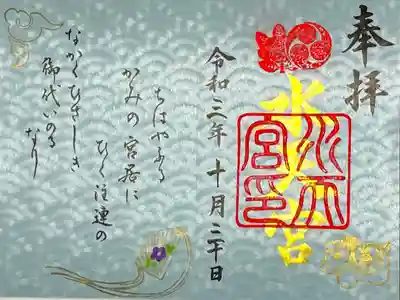 奉拝
水天宮
水天宮印
令和三年十月二十日
ちはやふる
かみの宮居に
ひく注連の
なかくひさしき
御代いのる
なり